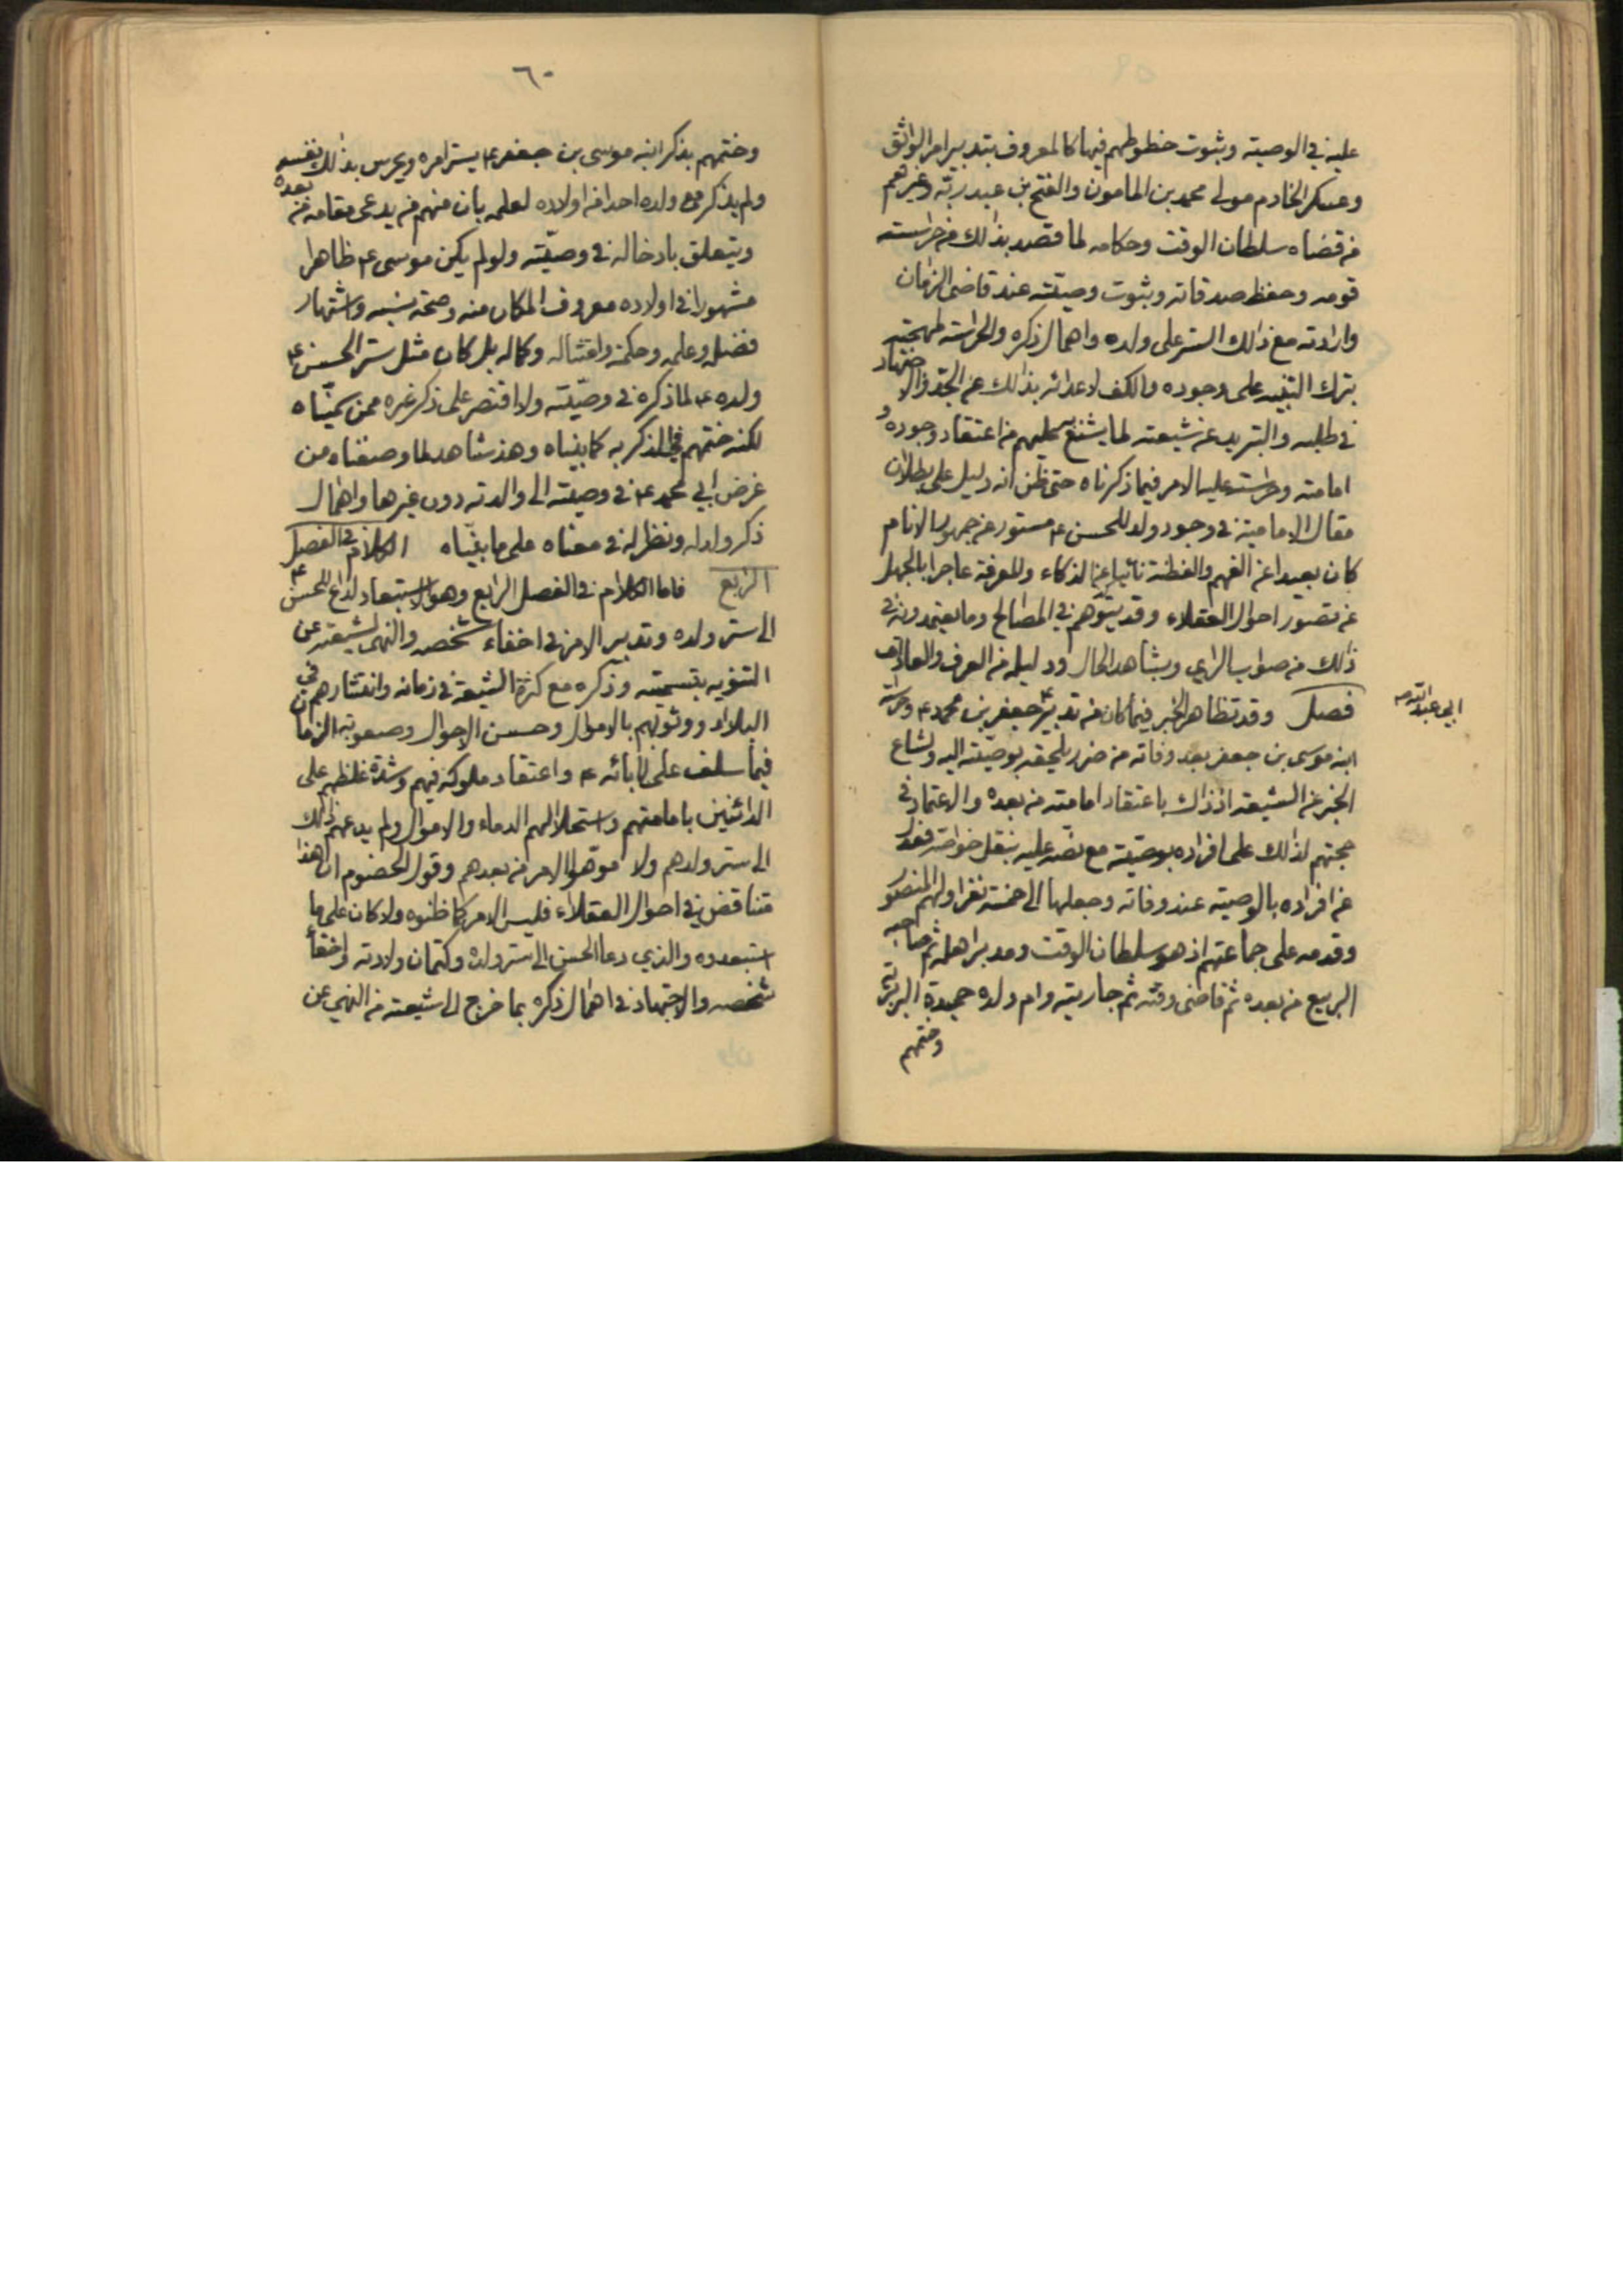 عليه في الوصية وثبوت خطوطهم فيها كالمعروف بتدبير امر الواثق
وعسكر الخادم مولى محمد بن المامون والفتح بن عبد ربه وغيرهم
من قضاه سلطان الوقت وحكامه لما قصد بذالك من حراسته
قومه وحفظ صدقاته وثبوت وصيته عند قاضى الزمان
وارادته مع ذالك الستر على ولده واهمال ذكره والحراسته لمهجته
بترك التنبيه على وجوده والكف لاعدائه بذالك عن الجد والاجتهاد
في طلبه والتبريد عن شيعته لما يشنع به عليهم من اعتقاد وجوده و
امامته و عليه الامر فيما ذكرناه حتى ظن انه دليل على بطلان
مقال الامامية في وجود ولد للحسن ع مستور عن جمهور الانام
كان بعيدا عن الفهم والفطنة نائيا عن الذكاء والمعرفة عاجزا بالجهل
عن تصور احوال العقلاء وقد يتوهم في المصالح وما يعتمدونه في
ذالك من صواب الراي وبشاهد الحال ودليله من العرف والعادات
فصل وقد تظاهر الخبر فيما كان من تدبير جعفر بن محمد ع وحراسة
ابي عبد الله
ابنه موسى بن جعفر بعد وفاته من ضرر يلحقه بوصيته اليه وشاع
الخبر عن الشيعة اذ ذاك باعتقاد امامته من بعده والاعتماد في
حجتهم لذالك على افراده بوصيته مع نصه عليه بنقل خواصه فعدل
عن افراده بالوصية عند وفاته وجعلها الى خمسة نفر اولهم المنصور
وقدمه على جماعتهم اذ هو سلطان الوقت ومدبر اهله ثم صاحبه
الربيع من بعده ثم قاضى وقته ثم جاريته وام ولده حميدة البربرية
وختمهم
٦٠
وختمهم بذكر ابنه موسى بن جعفر ع يستر امره ويحرس بذالك نفسه
ولم يذكر مع ولده احدا من اولاده لعلمه بان منهم من يدعى مقامه من بعده
ويتعلق بادخاله في وصيته ولو لم يكن موسى ع ظاهرا
مشهورا في اولاده معروف المكان منه وصحة نسبه واشتهار
فضله وعلمه وحكمة وامتثاله وكماله بل كان مثل ستر الحسن ع
ولده ع لما ذكره في وصيته ولا اقتصر على ذكر غيره ممن سميناه
لكنه ختمهم في الذكر به كما بيناه وهذ شاهد لما وصفناه من
غرض ابي محمد ع في وصيته الى والدته دون غيرها واهمال
ذكر ولد له ونظر له في معناه على ما بيناه الكلام في الفصل
الرابع فاما الكلام في الفصل الرابع وهو الاستبعاد لداع للحسن ع
الى ستر ولده وتدبير الامر في اخفاء شخصه والنهى لشيعته عن
التنويه بتسميته وذكره مع كثرة الشيعة في زمانه وانتشارهم في
البلاد ووثوبهم بالاموال وحسن الاحوال وصعوبة الزمان
فيما سلف على ابائه ع واعتقاد ملوكه فيهم وشدة غلظهم على
الدائنين بامامتهم واستحلالهم الدماء والاموال ولم يدعهم ذالك
الى ستر ولدهم ولا موهوا الامر من بعدهم وقول الخصوم ان هذا
متناقض في احوال العقلاء فليس الامر كما ظنوه ولا كان على ما
استبعدوه والذي دعا الحسن الى ستر ولده وكتمان ولادته واخفأ
شخصه والاجتهاد في اهمال ذكره بما خرج الى شيعته من النهي عن